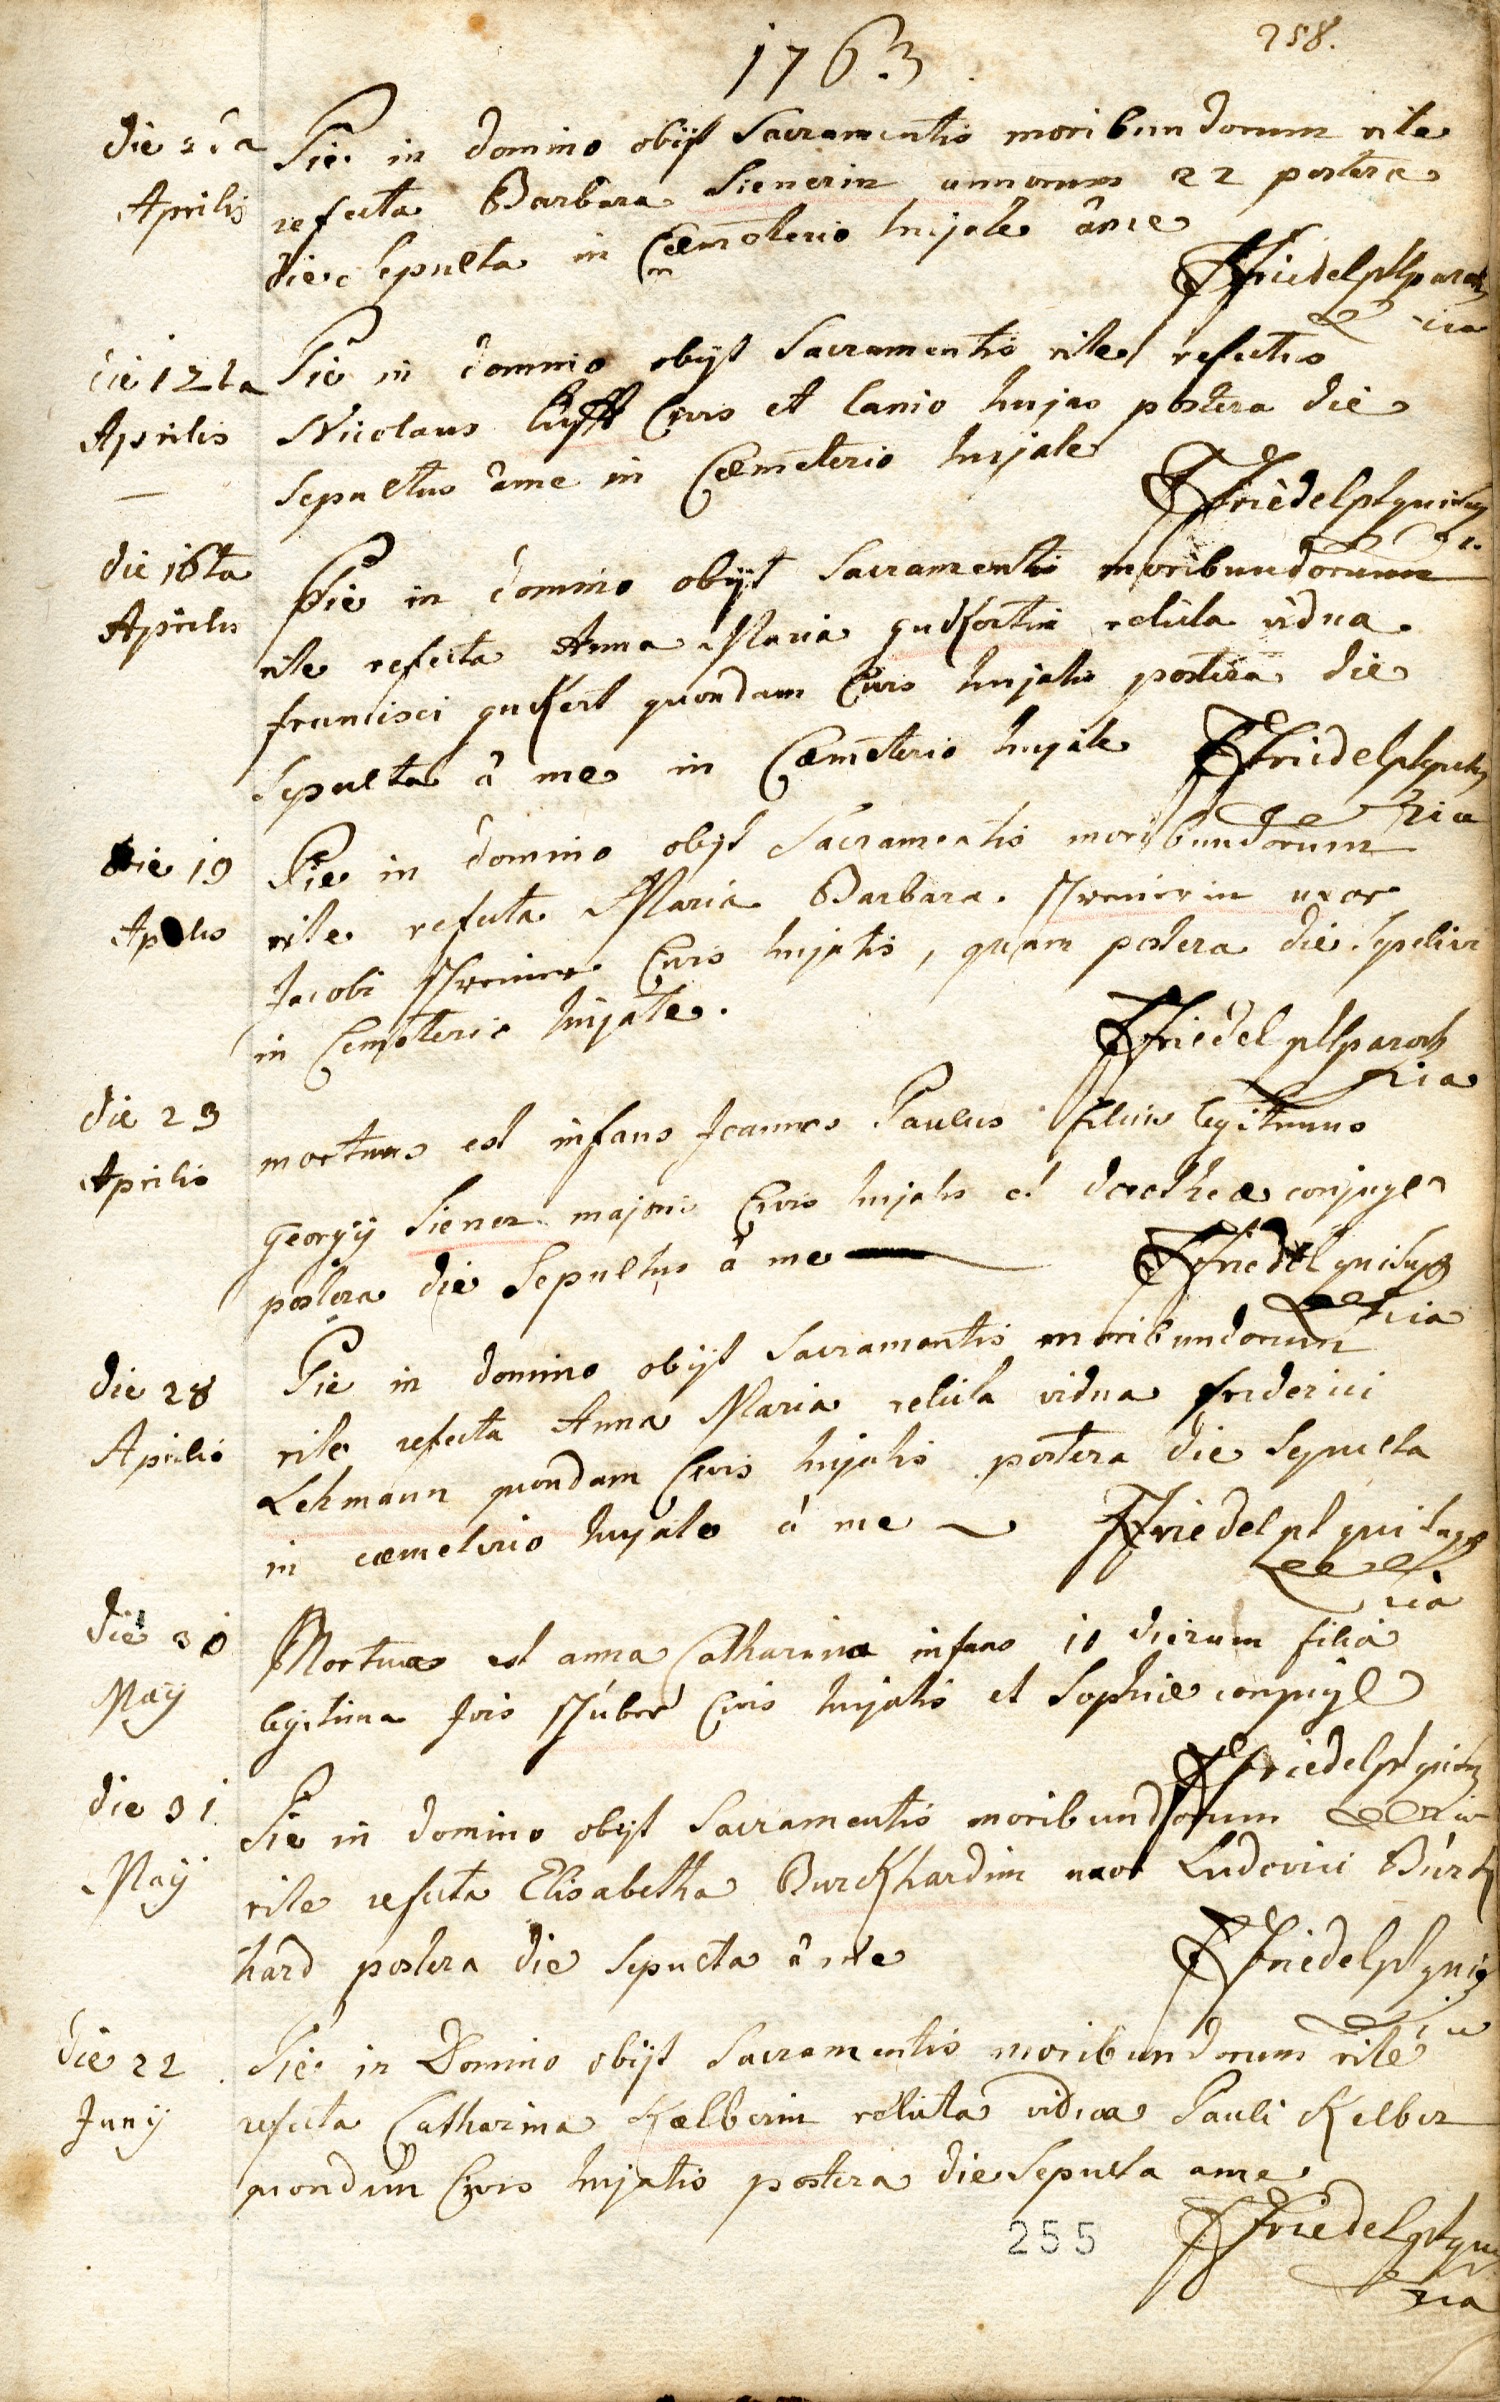 258.
1763
die 2da Pie in domino obijt Sacramentis moribundorum rite
Aprilis refecta Barbara Sienerin annorum 22 postera
die sepulta in Cœmeterio hujate âme
JFriedel pltparoch
ria
die 12ta Pie in domino obijt Sacramentis rite refectus
Aprilis Nicolaus Civis et lanio hujas postera die
sepultus âme in Cœmeterio hujate
JFriedel plt
die 16ta Pie in domino obijt Sacramentis moribundorum
Aprilis rite refecta Anna Maria guckertin relicta vidua
francisci guckert quondam Civis hujatis postera die
sepulta â me in Cœmeterio hujate JFriedel plt
ria
die 19 Pie in domino obijt Sacramentis moribundorum
Aprilis rite refecta Maria Barbara uxor
Jacobi Civis hujatis, quam postera die sepelivi
in Cemeterio hujate.
JFriedel pltparoch
ria
die 23 mortuus est infans Joannes Paulus filius legitimus
Aprilis georgij Siener majoris Civis hujatis et dorotheæ conjugū
postera die sepultus â me JFriedel
ria
die 28 Pie in domino obijt Sacramentis moribundorum
Aprilis rite refecta Anna Maria relicta vidua friderici
Lehmann quondam Civis hujatis postera die sepulta
in cæmeterio hujate â me JFriedel plt
ria
die 30 Mortua est anna Catharina infans 10 dierum filia
Maij legitima Jois Stüber Civis hujatis et Sophiæ conjugū
JFriedel plt
die 31 Pie in domino obijt Sacramentis moribundorum ria
Maij rite refecta Elisabetha Burckhardin uxor Ludovici Burck
hard postera die sepulta â me JFriedel plt
ria
die 22 Pie in Domino obijt Sacramentis moribundorum rite
Junij refecta Catharina Kælberin relicta vidua Pauli Kelber
quondam Civis hujatis postera die sepulta ame
255 JFriedel plt
ria